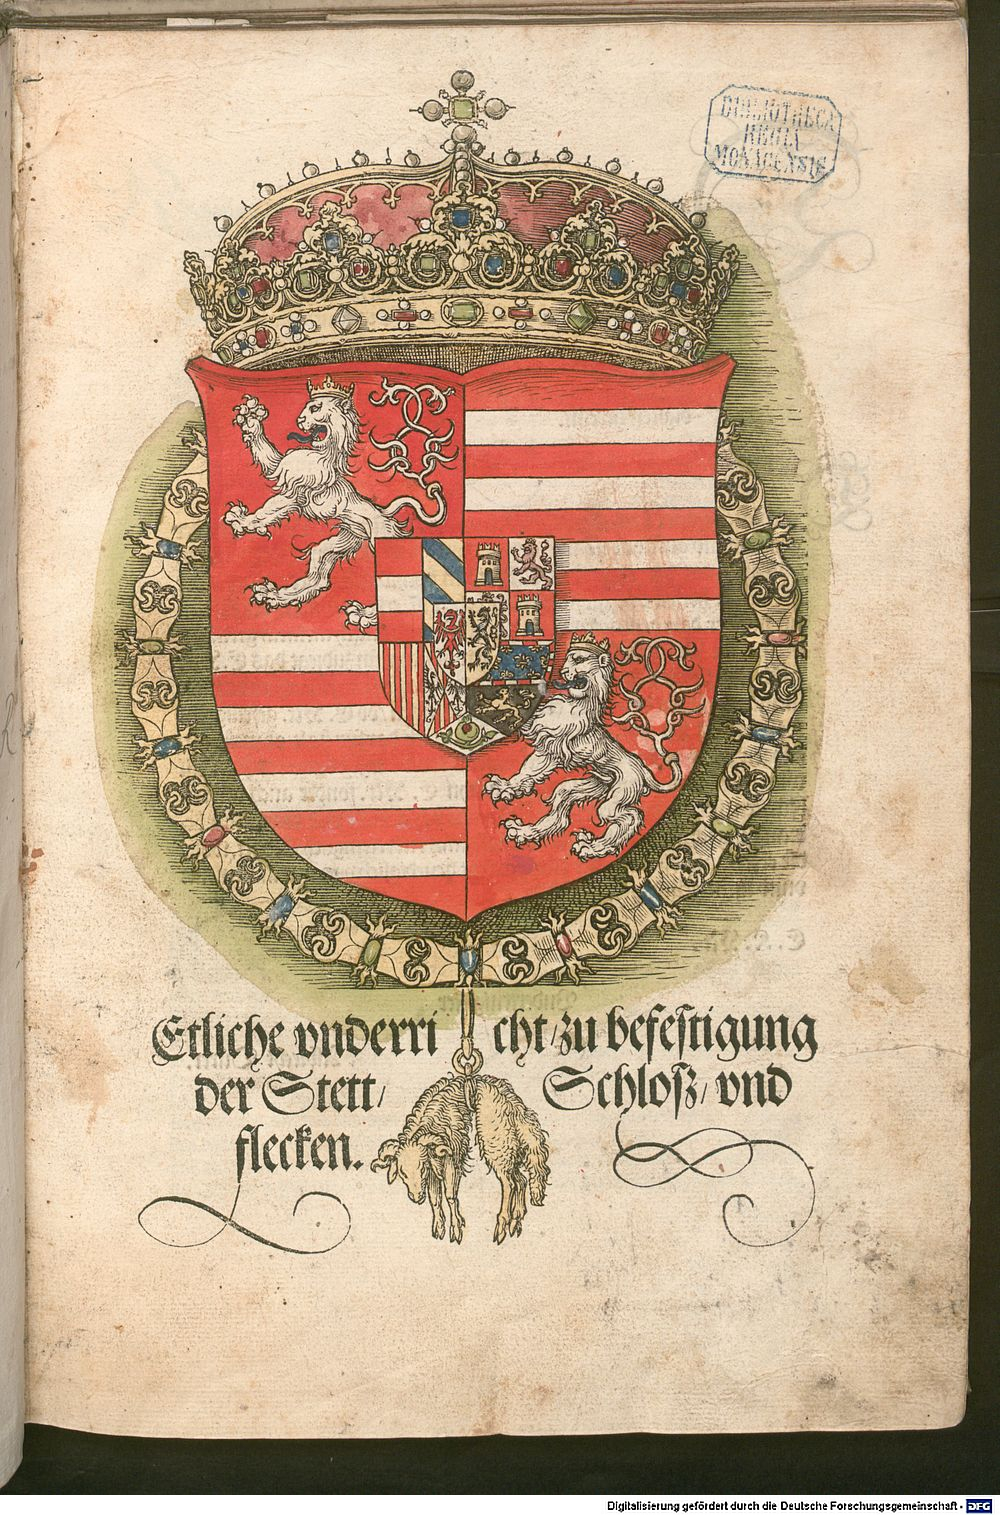 BIBLIOTHECA
REGIA
MONACENSIS
Etliche vnderricht/ zu befeſtigung
der Stett/ Schloſz/ vnd
flecken.
Digitalisierung gefördert durch die Deutsche Forschungsgemeinschaft - DFG